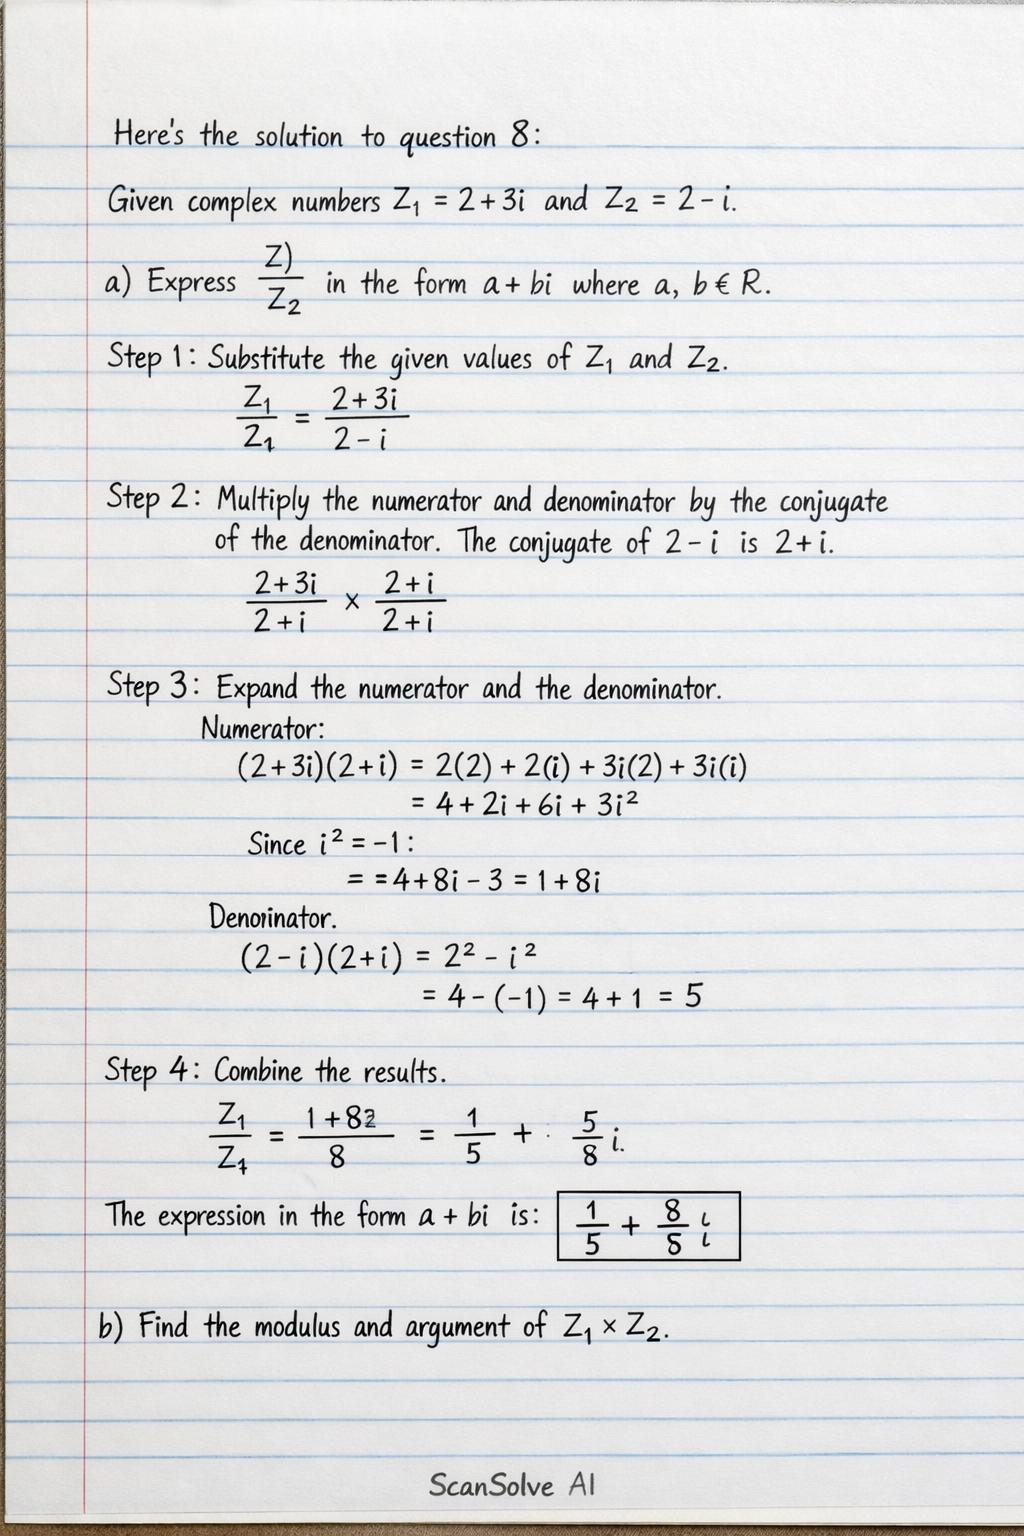 Here's the solution to question 8:
Given complex numbers Z₁ = 2+3i and Z₂ = 2-i.
a) Express Z)/Z₂ in the form a+bi where a, b € R.
Step 1: Substitute the given values of Z₁ and Z₂.
Z₁/Z₁ = 2+3i/2-i
Step 2: Multiply the numerator and denominator by the conjugate
of the denominator. The conjugate of 2-i is 2+i.
2+3i/2+i × 2+i/2+i
Step 3: Expand the numerator and the denominator.
Numerator:
(2+3i)(2+i) = 2(2) + 2(i) + 3i(2) + 3i(i)
= 4+2i+6i+3i²
Since i² = -1:
= =4+8i-3 = 1+8i
Denoıinator.
(2-i)(2+i) = 2² - i²
= 4-(-1) = 4+1 = 5
Step 4: Combine the results.
Z₁/Z₁ = 1+82/8 = 1/5 + 5/8 i.
The expression in the form a+bi is: 1/5 + 8/8 i
b) Find the modulus and argument of Z₁ × Z₂.
ScanSolve AI